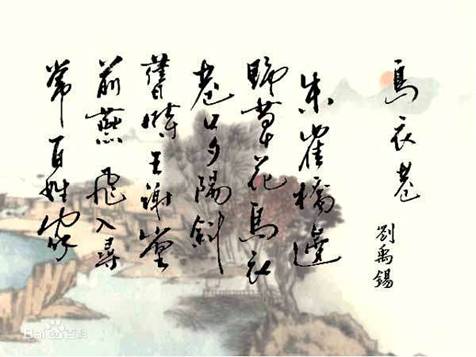 烏衣巷
劉禹錫
朱雀橋邊
野草花烏衣
巷口夕陽斜
舊時王謝堂
前燕飛入尋
常百姓家
Bai百科